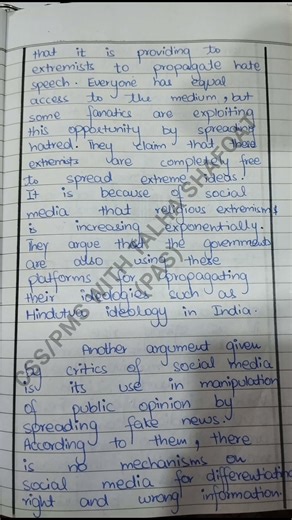 that it is providing to
extremists to propagate hate
speech. Everyone has equal
access to the medium, but
some fanatics are exploiting
this opportunity by spreading
hatred. They claim that
extremists are completely free
to spread extreme ideas.
It is because of social
media that religious extremisms
is increasing exponentially.
They argue that the governments
are also using these
platforms for propagating
their ideologies such as
Hindutva ideology in India.
Another argument given
by critics of social media
is its use in manipulation
of public opinion by
spreading fake news.
According to them, there
is no mechanisms on
social media for differentiating
right and wrong information.
CSS/PMS WITH
(PAS)